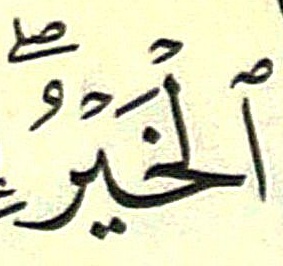 ٱلْخَيْرُۖ